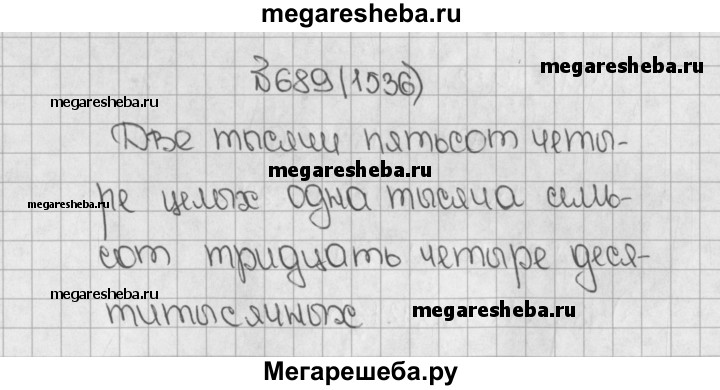 megaresheba.ru
№689(1536)
megaresheba.ru
megaresheba.ru
Две тысячи пятьсот четы-
megaresheba.ru
megaresheba.ru
ре целых одна тысяча семь-
сот тридцать четыре деся-
megaresheba.ru
титысячных
megaresheba.ru
Мегарешеба.ру